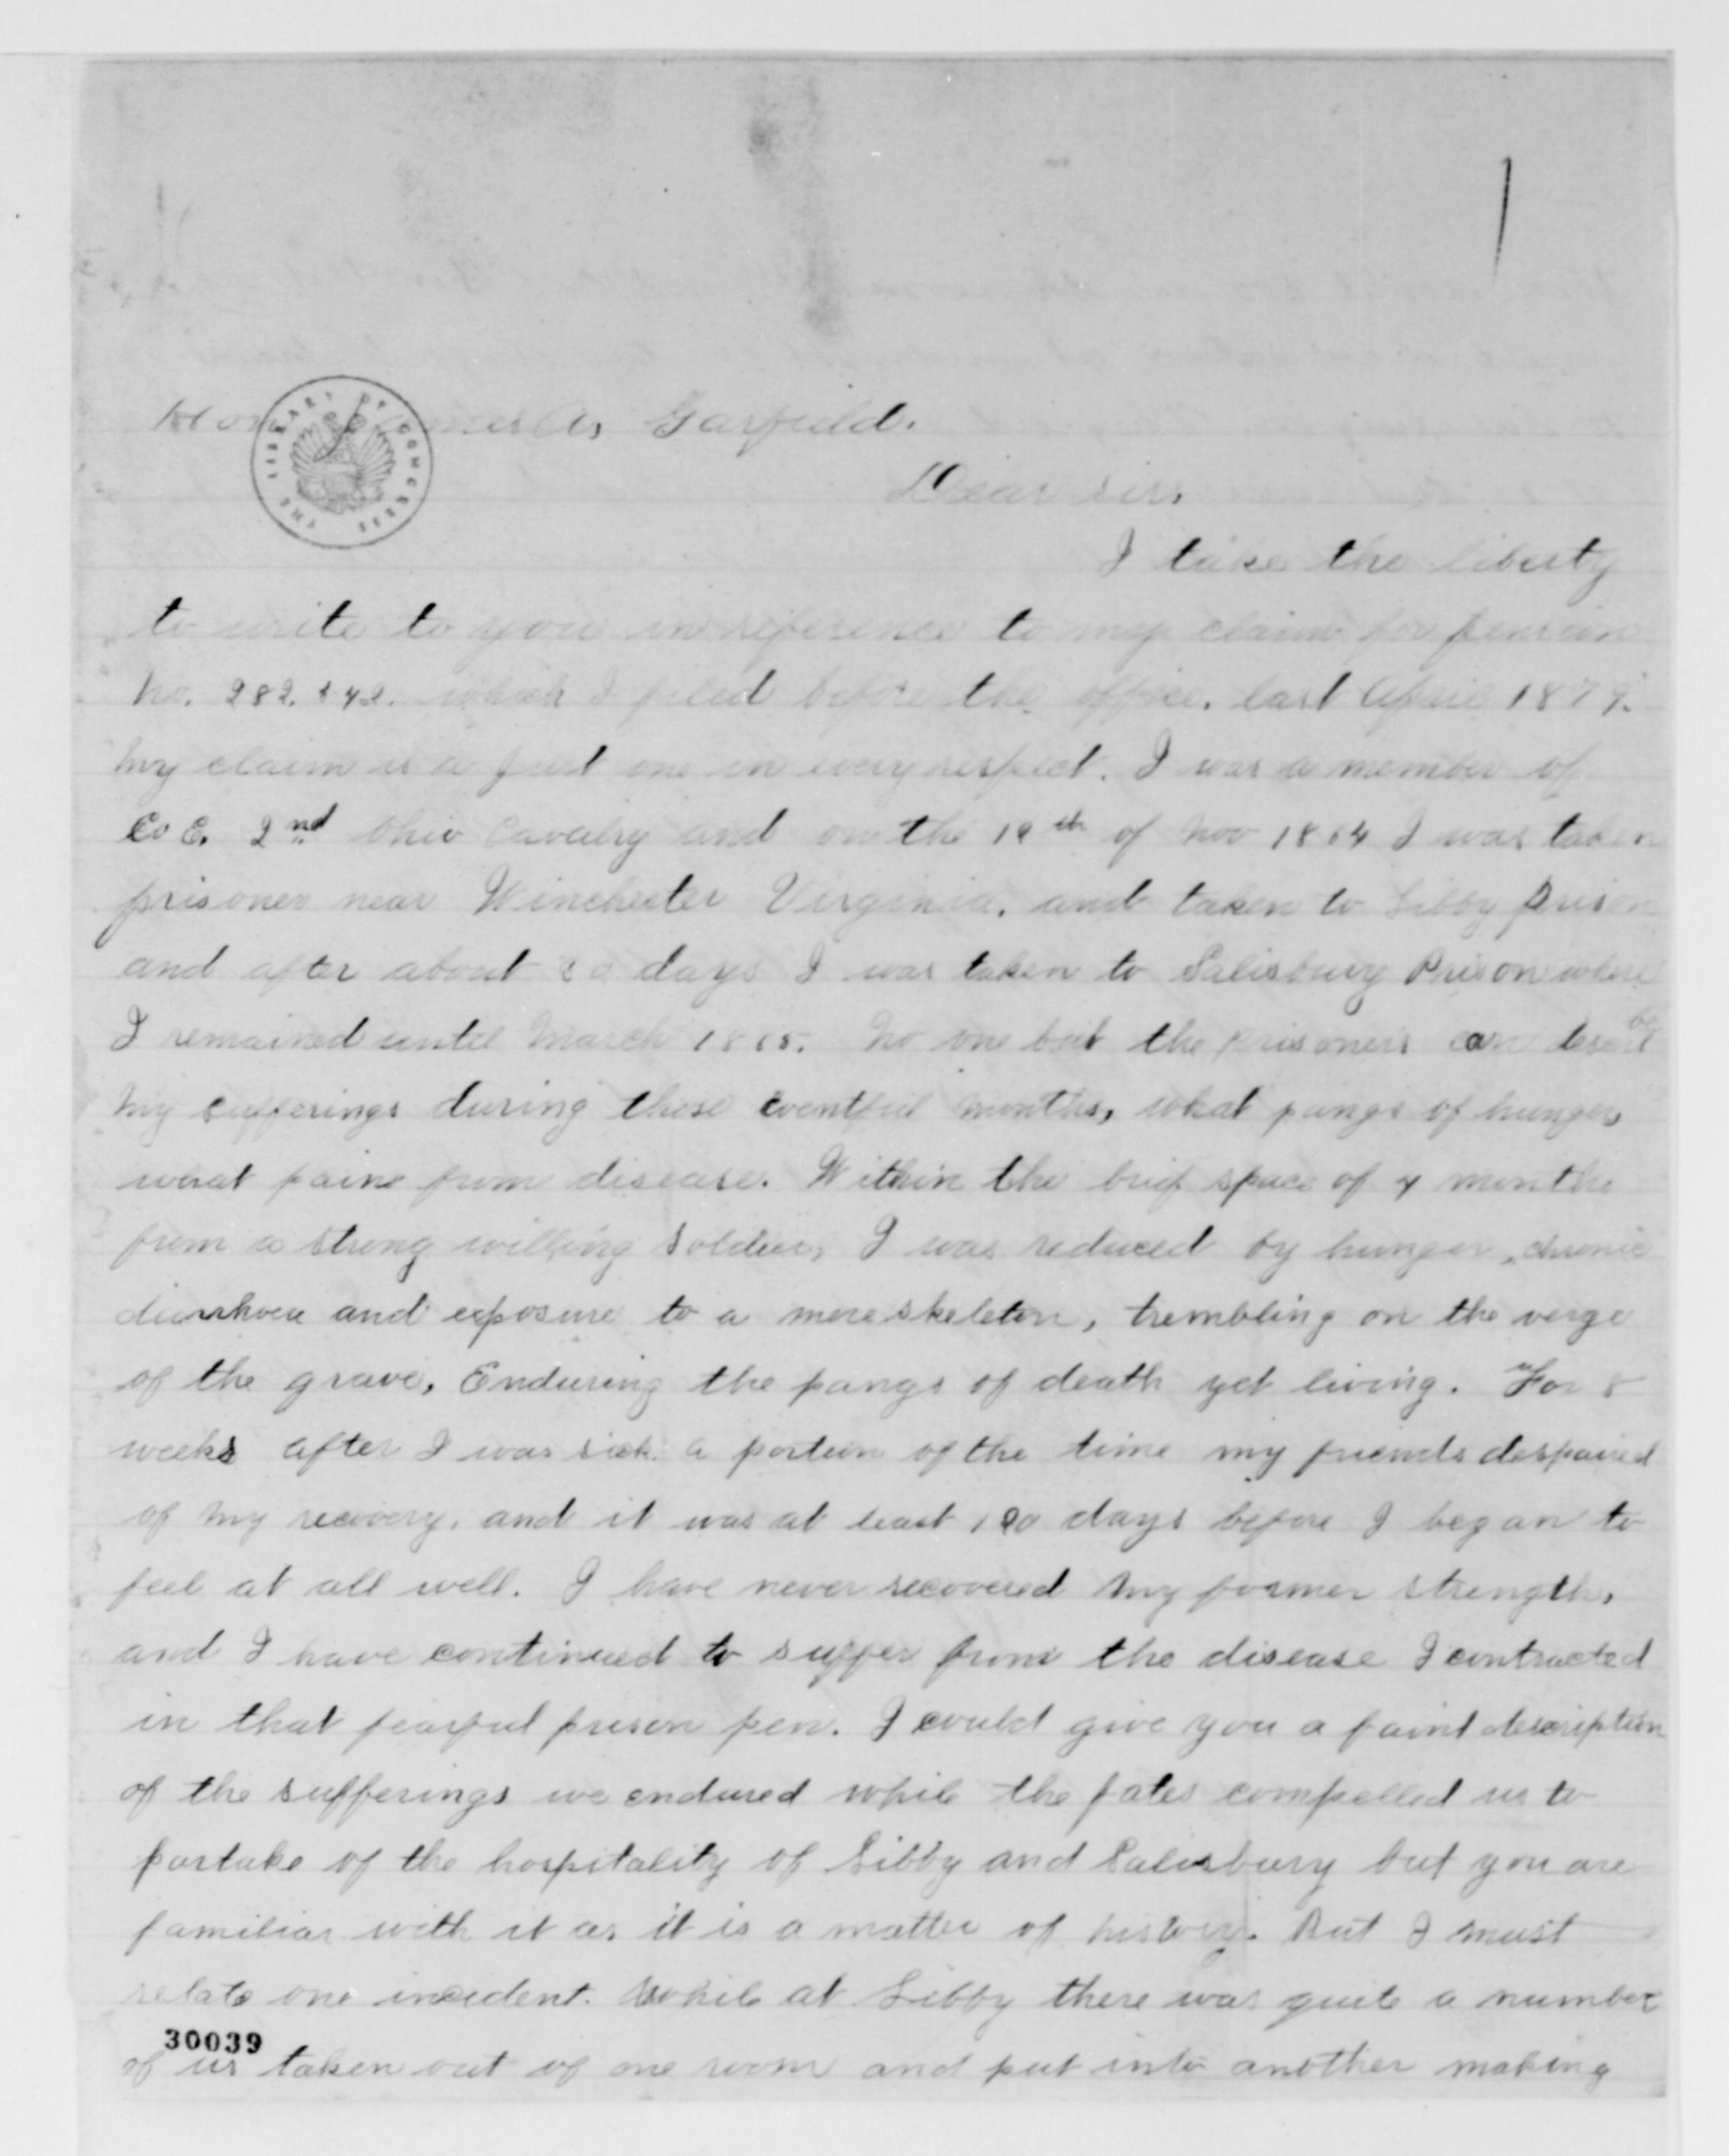 Hon James A, Garfield.
THE LIBRARY OF CONGRESS
Dear sir,
I take the liberty
to write to you in reference to my claim for pension
No. 282. which I filed before the office. last April 1879.
My claim is a just one in every respect. I was a member of
Co E. 2nd Ohio Cavalry and on the of Nov 1864 I was taken
prisoner near Winchester Virginia. and taken to Libby prison
and after about days I was taken to Salisbury Prison where
I remained until March 1865. No one but the prisoners can describe
my sufferings during those eventful months, what pangs of hunger,
what pains from disease. Within the brief space of 4 months
from a strong willing soldier, I was reduced by hunger, chronic
diarrhoea and exposure to a mere skeleton, trembling on the verge
of the grave, Enduring the pangs of death yet living. For 8
weeks after I was sick. a portion of the time my friends despaired
of my recovery, and it was at least days before I began to
feel at all well. I have never recovered my former strength,
and I have continued to suffer from the disease I contracted
in that fearful prison pen. I could give you a faint description
of the sufferings we endured while the fates compelled us to
partake of the hospitality of Libby and Salisbury but you are
familiar with it as it is a matter of history. But I must
relate one incident. While at Libby there was quite a number
30039
of us taken out of one room and put into another making